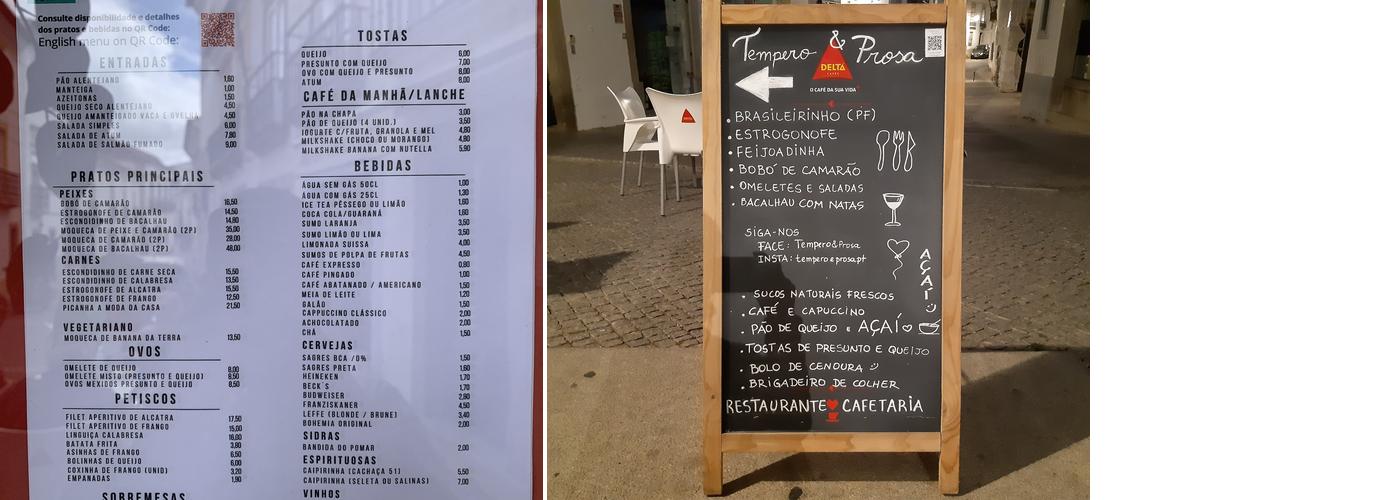 Consulte disponibilidade e detalhes
dos pratos e bebidas no QR Code:
English menu on QR Code:
ENTRADAS
PÃO ALENTEJANO 1,60
MANTEIGA 1,00
AZEITONAS 1,50
QUEIJO SECO ALENTEJANO 4,50
QUEIJO AMANTEIGADO VACA E OVELHA 4,50
SALADA SIMPLES 6,00
SALADA DE ATUM 7,80
SALADA DE SALMÃO FUMADO 9,00
PRATOS PRINCIPAIS
PEIXES
BOBÓ DE CAMARÃO 16,50
ESTROGONOFE DE CAMARÃO 14,50
ESCONDIDINHO DE BACALHAU 14,80
MOQUECA DE PEIXE E CAMARÃO (2P) 35,00
MOQUECA DE CAMARÃO (2P) 28,00
MOQUECA DE BACALHAU (2P) 48,00
CARNES
ESCONDIDINHO DE CARNE SECA 15,50
ESCONDIDINHO DE CALABRESA 13,50
ESTROGONOFE DE ALCATRA 15,50
ESTROGONOFE DE FRANGO 12,50
PICANHA A MODA DA CASA 21,50
VEGETARIANO
MOQUECA DE BANANA DA TERRA 13,50
OVOS
OMELETE DE QUEIJO 8,00
OMELETE MISTO (PRESUNTO E QUEIJO) 8,50
OVOS MEXIDOS PRESUNTO E QUEIJO 8,50
PETISCOS
FILET APERITIVO DE ALCATRA 17,50
FILET APERITIVO DE FRANGO 15,00
LINGUIÇA CALABRESA 16,00
BATATA FRITA 3,80
ASINHAS DE FRANGO 6,50
BOLINHAS DE QUEIJO 6,00
COXINHA DE FRANGO (UNID) 3,20
EMPANADAS 1,90
SOBREMESAS
TOSTAS
QUEIJO 6,00
PRESUNTO COM QUEIJO 7,00
OVO COM QUEIJO E PRESUNTO 8,00
ATUM 8,00
CAFÉ DA MANHÃ/LANCHE
PÃO NA CHAPA 3,00
PÃO DE QUEIJO (4 UNID.) 3,50
IOGURTE C/FRUTA, GRANOLA E MEL 4,80
MILKSHAKE (CHOCO OU MORANGO) 4,80
MILKSHAKE BANANA COM NUTELLA 5,90
BEBIDAS
ÁGUA SEM GÁS 50CL 1,00
ÁGUA COM GÁS 25CL 1,30
ICE TEA PÊSSEGO OU LIMÃO 1,60
COCA COLA/GUARANÁ 1,60
SUMO LARANJA 3,50
SUMO LIMÃO OU LIMA 3,50
LIMONADA SUISSA 4,00
SUMOS DE POLPA DE FRUTAS 4,50
CAFÉ EXPRESSO 0,80
CAFÉ PINGADO 1,00
CAFÉ ABATANADO / AMERICANO 1,50
MEIA DE LEITE 1,20
GALÃO 1,50
CAPPUCCINO CLÁSSICO 2,00
ACHOCOLATADO 2,00
CHÁ 1,50
CERVEJAS
SAGRES BCA /0% 1,50
SAGRES PRETA 1,60
HEINEKEN 1,70
BECK´S 1,70
BUDWEISER 2,80
FRANZISKANER 4,50
LEFFE (BLONDE / BRUNE) 3,40
BOHEMIA ORIGINAL 2,00
SIDRAS
BANDIDA DO POMAR 2,00
ESPIRITUOSAS
CAIPIRINHA (CACHAÇA 51) 5,50
CAIPIRINHA (SELETA OU SALINAS) 7,00
VINHOS
Tempero & Prosa
DELTA
CAFÉS
O CAFÉ DA SUA VIDA
• BRASILEIRINHO (PF)
• ESTROGONOFE
• FEIJOADINHA
• BOBÓ DE CAMARÃO
• OMELETES E SALADAS
• BACALHAU COM NATAS
SIGA-NOS
FACE: Tempero&Prosa
INSTA: temperoeprosa.pt
AÇAÍ
• SUCOS NATURAIS FRESCOS
• CAFÉ E CAPUCCINO
• PÃO DE QUEIJO E AÇAÍ
• TOSTAS DE PRESUNTO E QUEIJO
• BOLO DE CENOURA
• BRIGADEIRO DE COLHER
RESTAURANTE CAFETARIA